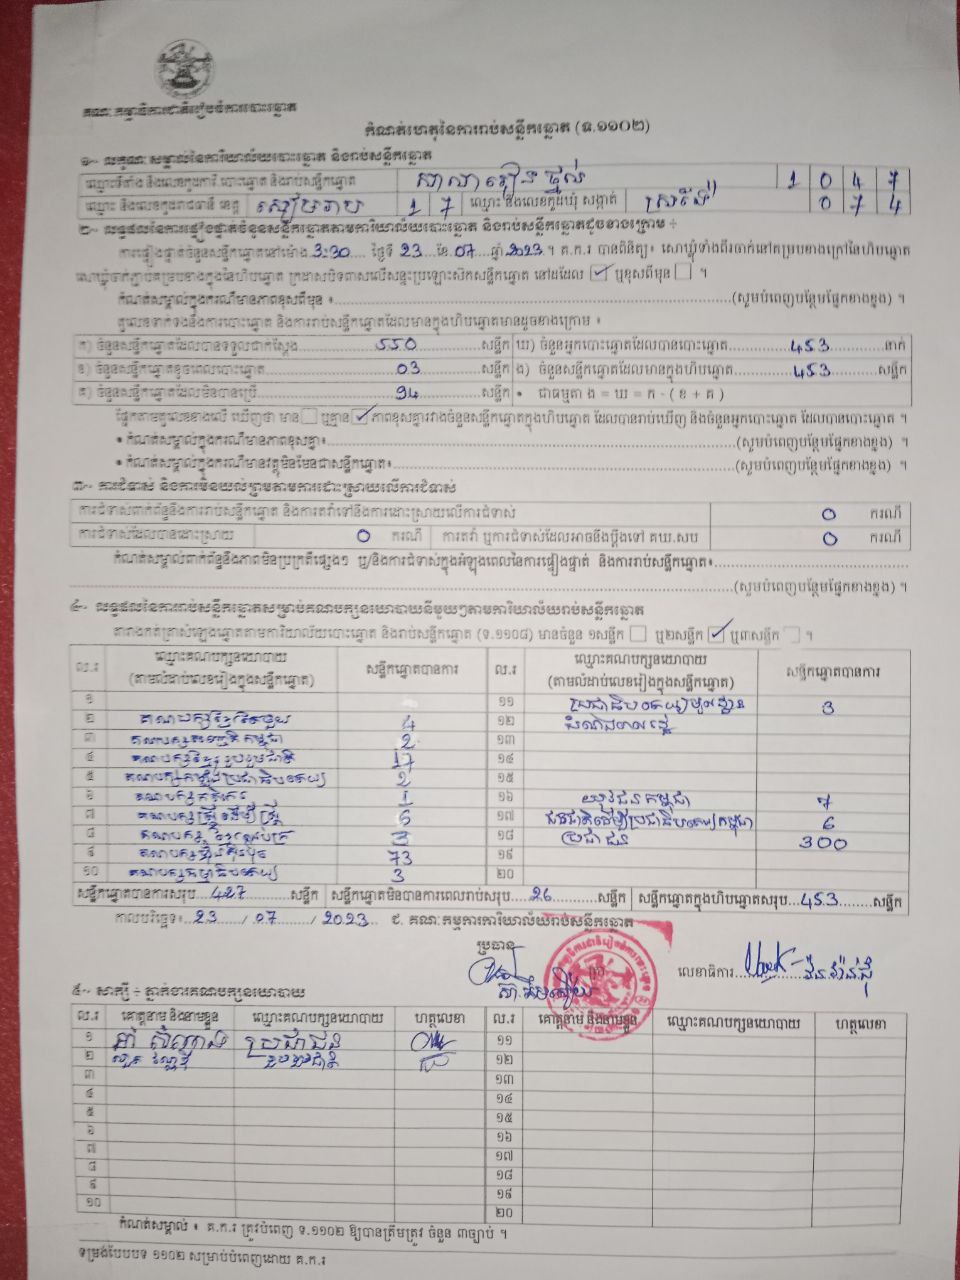 គណៈកម្មាធិការជាតិរៀបចំការបោះឆ្នោត
កំណត់ហេតុនៃការរាប់សន្លឹកឆ្នោត (ទ.១១០២)
១- លក្ខណៈសម្គាល់នៃការិយាល័យបោះឆ្នោត និងរាប់សន្លឹកឆ្នោត
ឈ្មោះទីតាំង និងលេខកូដការិ.បោះឆ្នោត និងរាប់សន្លឹកឆ្នោត សាលារៀន ថ្នល់ 1 0 4 7
ឈ្មោះ និងលេខកូដរាជធានី ខេត្ត សៀមរាប 1 7 ឈ្មោះ និងលេខកូដឃុំ សង្កាត់ ស្រងែ 0 7 4
២- លទ្ធផលនៃការផ្ទៀងផ្ទាត់ចំនួនសន្លឹកឆ្នោតតាមការិយាល័យបោះឆ្នោត និងរាប់សន្លឹកឆ្នោតដូចខាងក្រោម ÷
ការផ្ទៀងផ្ទាត់ចំនួនសន្លឹកឆ្នោតនៅម៉ោង 3:30 ថ្ងៃទី 23 ខែ 07 ឆ្នាំ 2023។ គ.ក.រ បានពិនិត្យ៖ សោឃ្លុំទាំងពីរចាក់នៅគម្របខាងក្រៅនៃហិបឆ្នោត
សោឃ្លុំចាក់ភ្ជាប់គម្របខាងក្នុងនៃហិបឆ្នោត ក្រដាសបិទពាសលើសន្ទះប្រឡោះស៊កសន្លឹកឆ្នោត នៅដដែល ✓ ឬខុសពីមុន ។
កំណត់សម្គាល់ក្នុងករណីមានភាពខុសពីមុន ៖ (សូមបំពេញបន្ថែមផ្នែកខាងខ្នង) ។
តួលេខទាក់ទងនឹងការបោះឆ្នោត និងការរាប់សន្លឹកឆ្នោតដែលមានក្នុងហិបឆ្នោតមានដូចខាងក្រោម ៖
ក) ចំនួនសន្លឹកឆ្នោតដែលបានទទួលជាក់ស្តែង 550 សន្លឹក ឃ) ចំនួនអ្នកបោះឆ្នោតដែលបានបោះឆ្នោត 453 នាក់
ខ) ចំនួនសន្លឹកឆ្នោតខូចពេលបោះឆ្នោត 03 សន្លឹក ង) ចំនួនសន្លឹកឆ្នោតដែលមានក្នុងហិបឆ្នោត 453 សន្លឹក
គ) ចំនួនសន្លឹកឆ្នោតដែលមិនបានប្រើ 94 សន្លឹក • ជាធម្មតា ង = ឃ = ក - ( ខ + គ )
ផ្អែកតាមតួលេខខាងលើ ឃើញថា មាន ឬគ្មាន ✓ ភាពខុសគ្នារវាងចំនួនសន្លឹកឆ្នោតក្នុងហិបឆ្នោត ដែលបានរាប់ឃើញ និងចំនួនអ្នកបោះឆ្នោត ដែលបានបោះឆ្នោត ។
• កំណត់សម្គាល់ក្នុងករណីមានភាពខុសគ្នា៖ (សូមបំពេញបន្ថែមផ្នែកខាងខ្នង) ។
• កំណត់សម្គាល់ក្នុងករណីមានវត្ថុមិនមែនជាសន្លឹកឆ្នោត៖ (សូមបំពេញបន្ថែមផ្នែកខាងខ្នង) ។
៣- ការជំទាស់ និងការមិនយល់ព្រមតាមការដោះស្រាយលើការជំទាស់
ការជំទាស់ពាក់ព័ន្ធនឹងការរាប់សន្លឹកឆ្នោត និងការតវ៉ាទៅនឹងការដោះស្រាយលើការជំទាស់ 0 ករណី
ការជំទាស់ដែលបានដោះស្រាយ 0 ករណី ការតវ៉ា ឬការជំទាស់ដែលអាចនឹងប្តឹងទៅ គឃ.សប 0 ករណី
កំណត់សម្គាល់ពាក់ព័ន្ធនឹងភាពមិនប្រក្រតីផ្សេងៗ ឬ/និងការជំទាស់ក្នុងអំឡុងពេលនៃការផ្ទៀងផ្ទាត់ និងការរាប់សន្លឹកឆ្នោត៖
(សូមបំពេញបន្ថែមផ្នែកខាងខ្នង) ។
៤- លទ្ធផលនៃការរាប់សន្លឹកឆ្នោតសម្រាប់គណបក្សនយោបាយនីមួយៗតាមការិយាល័យរាប់សន្លឹកឆ្នោត
តារាងកត់ត្រាសំឡេងឆ្នោតតាមការិយាល័យបោះឆ្នោត និងរាប់សន្លឹកឆ្នោត (ទ.១១០៨) មានចំនួន ១សន្លឹក ឬ២សន្លឹក ✓ ឬ៣សន្លឹក ។
ល.រ ឈ្មោះគណបក្សនយោបាយ (តាមលំដាប់លេខរៀងក្នុងសន្លឹកឆ្នោត) សន្លឹកឆ្នោតបានការ ល.រ ឈ្មោះគណបក្សនយោបាយ (តាមលំដាប់លេខរៀងក្នុងសន្លឹកឆ្នោត) សន្លឹកឆ្នោតបានការ
១ ១១ ប្រជាធិបតេយ្យមូលដ្ឋាន 3
២ គណបក្សខ្មែរតែមួយ 4 ១២
៣ 2 ១៣
៤ 17 ១៤
៥ គណបក្សកម្លាំងប្រជាធិបតេយ្យ 2 ១៥
៦ គណបក្សកសិករ 1 ១៦ យុវជនកម្ពុជា 7
៧ គណបក្សស្ត្រីដើម្បីស្ត្រី 5 ១៧ ជនជាតិដើមប្រជាធិបតេយ្យកម្ពុជា 6
៨ 3 ១៨ ប្រជាជន 300
៩ គណបក្សហ៊្វុនស៊ិនប៉ិច 73 ១៩
១០ គណបក្សធម្មាធិបតេយ្យ 3 ២០
សន្លឹកឆ្នោតបានការសរុប 427 សន្លឹក សន្លឹកឆ្នោតមិនបានការពេលរាប់សរុប 26 សន្លឹក សន្លឹកឆ្នោតក្នុងហិបឆ្នោតសរុប 453 សន្លឹក
កាលបរិច្ឆេទ៖ 23 / 07 / 2023 ជ. គណៈកម្មការការិយាល័យរាប់សន្លឹកឆ្នោត
ប្រធាន
លេខាធិការ
៥- សាក្សី ÷ ភ្នាក់ងារគណបក្សនយោបាយ
ល.រ គោត្តនាម និងនាមខ្លួន ឈ្មោះគណបក្សនយោបាយ ហត្ថលេខា ល.រ គោត្តនាម និងនាមខ្លួន ឈ្មោះគណបក្សនយោបាយ ហត្ថលេខា
១ ប្រជាជន ១១
២ ១២
៣ ១៣
៤ ១៤
៥ ១៥
៦ ១៦
៧ ១៧
៨ ១៨
៩ ១៩
១០ ២០
កំណត់សម្គាល់ ៖ គ.ក.រ ត្រូវបំពេញ ទ.១១០២ ឱ្យបានត្រឹមត្រូវ ចំនួន ៣ច្បាប់ ។
ទម្រង់បែបបទ ១១០២ សម្រាប់បំពេញដោយ គ.ក.រ